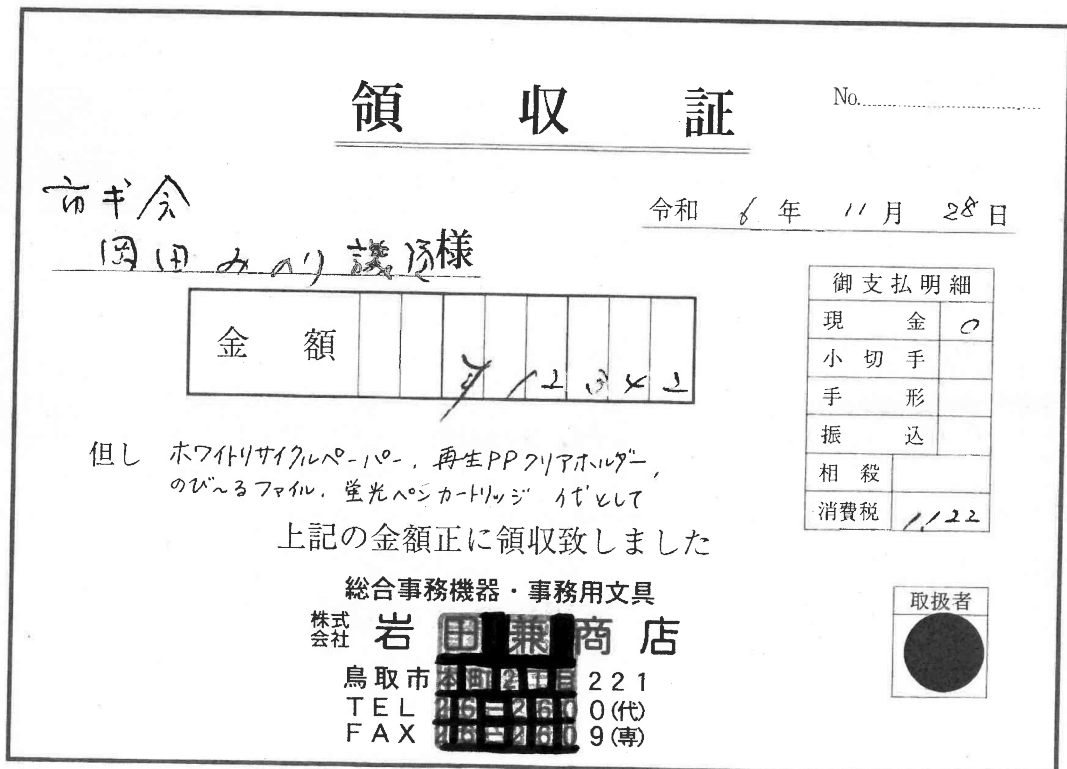 領収証
No.
市ギ会
岡田みのり議員様
令和 6年 11月 28日
金額 ¥12342
御支払明細
現金 0
小切手
手形
振込
相殺
消費税 1,122
但し ホワイトリサイクルペーパー、再生PPクリアホルダー、
のび~るファイル、蛍光ペンカートリッジ 代として
上記の金額正に領収致しました
総合事務機器・事務用文具
株式会社 岩田兼商店
鳥取市本町2丁目221
TEL 26-2600(代)
FAX 26-2609(専)
取扱者